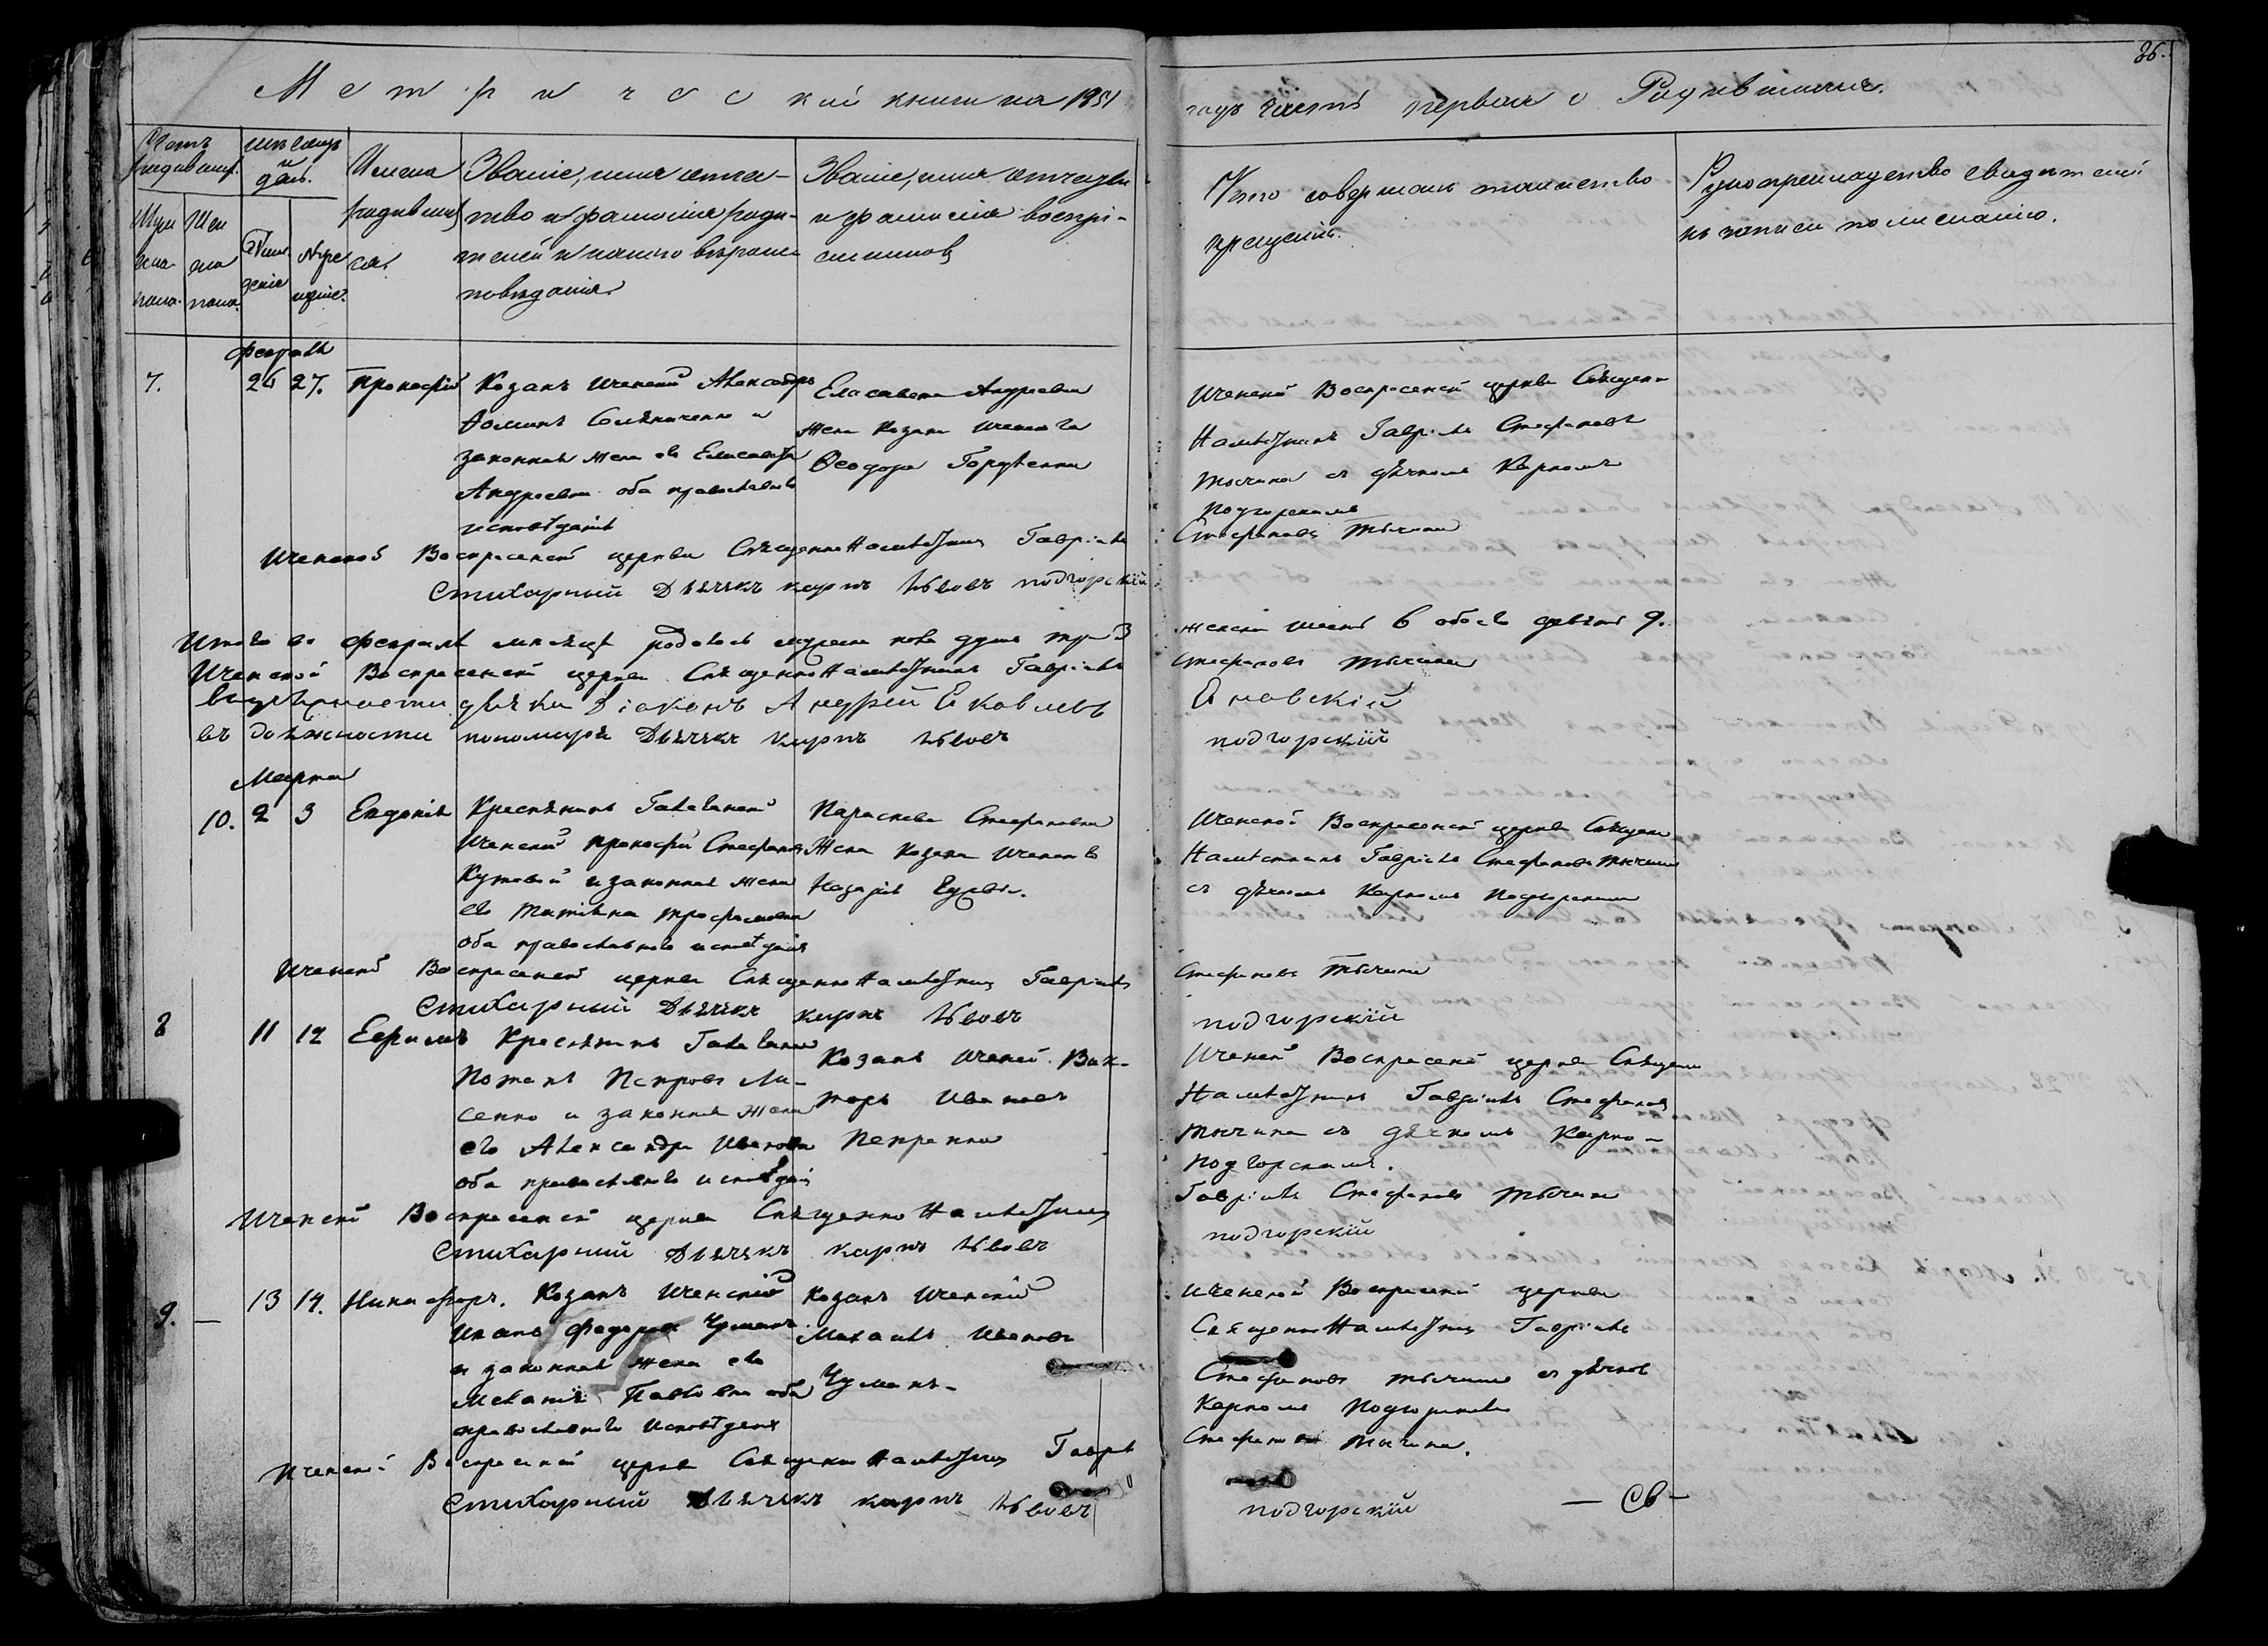 36.
Метрической книги на 1851
годъ часть первая о Родившихся.
Счетъ родивших.
Мѣсяцъ и день.
Имена родившихся.
Званіе, имя отче-
ство и фамилія роди-
телей и какого вѣроис-
повѣданія.
Званіе, имя отчество
и фамилія воспрі-
емниковъ
Кто совершалъ таинство
крещенія.
Рукоприкладство свидѣтелей
къ записи по желанію.
Муж
Жен
Рож
денія
Кре
щенія.
Февраля
7.
26
27.
Прокофій
Козакъ Иченскій Александръ
законная жена его Елисавета
Андреевна оба православнаго
исповѣданія
Елисавета Андреевна
жена Козака
Феодора
Иченской Воскресенской церкви Священно
Намѣстникъ Гавріилъ Стефановъ
Тычина съ дячкомъ Карпомъ
Подгорскимъ
Иченской Воскресенской церкви СвященноНамѣстникъ Гавріилъ
Стефановъ Тычина
Стихарный Дьячекъ карпъ Львовъ подгорскій
Итого въ Февралѣ мѣсяцѣ родилось мужеска пола душъ три 3
женска шесть 6 обоего девять 9.
Иченской Воскресенской церкви СвященноНамѣстникъ Гавріилъ
Стефановъ Тычина
дьячка Діаконъ Андрей Яковлевъ
Яновскій
въ должности пономаря Дьячекъ карпъ Львовъ
подгорскій
Марта
10.
2
3
Евдокія
Крестьянинъ
Иченскій Прокофій Стефановъ
Кутовой и законная жена
его Татіана Трофимовна
оба православнаго исповѣданія
Параскева Стефановна
Жена Козака
Назарія
Иченской Воскресенской церкви Священно
Намѣстникъ Гавріилъ Стефановъ Тычина
съ дячкомъ Карпомъ Подгорскимъ
Иченской Воскресенской церкви СвященноНамѣстникъ Гавріилъ
Стефановъ Тычина
Стихарный Дьячекъ карпъ Львовъ
подгорскій
8
11
12
Ефимъ
Крестьянинъ
Потапъ Петровъ Ли-
сенко и законная жена
его Александра Иванова
оба православнаго исповѣданія
Козакъ Иченскій Вик-
торъ Ивановъ
Петренко
Иченской Воскресенской церкви Священно
Намѣстникъ Гавріилъ Стефановъ
Тычина съ дячкомъ Карпо-
Подгорскимъ.
Иченской Воскресенской церкви СвященноНамѣстникъ
Гавріилъ Стефановъ Тычина
Стихарный Дьячекъ карпъ Львовъ
подгорскій
9.
13
14.
Никифоръ.
Козакъ Иченскій
Иванъ Федоровъ Чумакъ
и законная жена его
Меланія Павловна оба
православнаго исповѣданія
Козакъ Иченскій
Михаилъ Ивановъ
Чумакъ
Иченской Воскресенской церкви
СвященноНамѣстникъ Гавріилъ
Стефановъ Тычина съ дячкомъ
Карпомъ Подгорскимъ
Иченской Воскресенской церкви СвященноНамѣстникъ Гавріилъ
Стефановъ Тычина.
Стихарный Дьячекъ карпъ Львовъ
подгорскій
— Св —